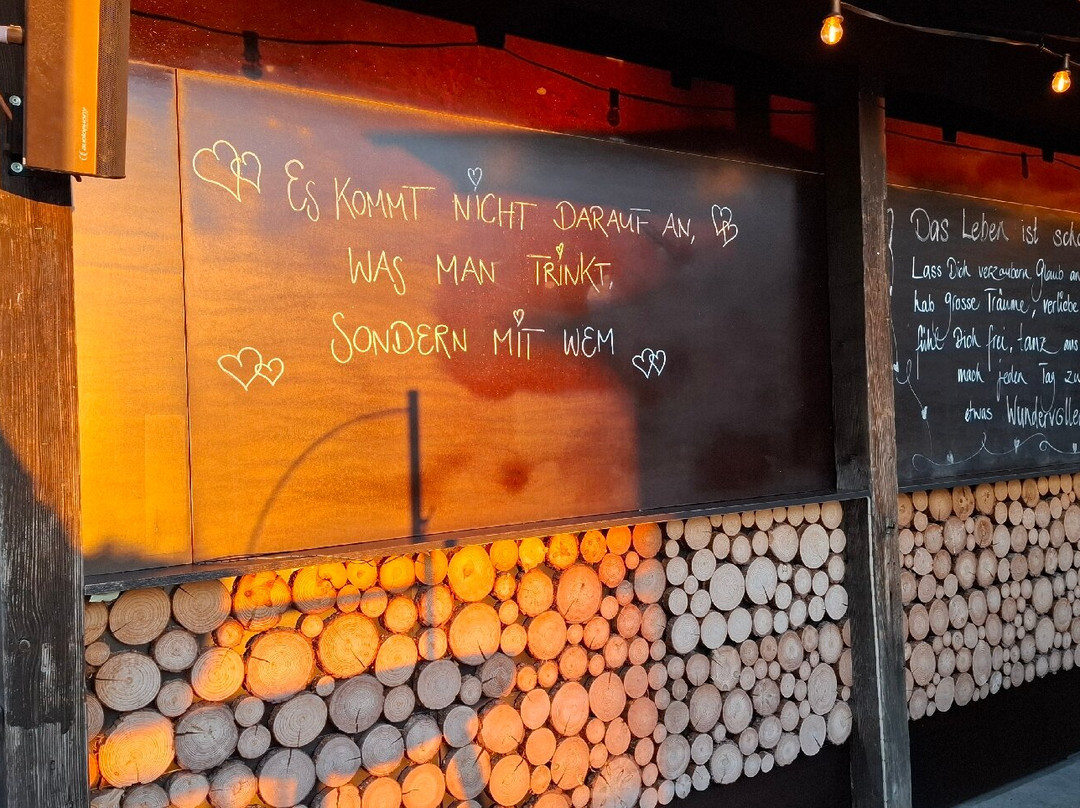 Es KOMMT NICHT DARAUF AN,
WAS MAN TRINKT,
SONDERN MIT WEM
Das Leben ist
Lass Dich verzaubern, Glaub an
hab grosse Träume, verliebe
fühl Dich frei, tanz
mach jeden Tag zu
etwas Wundervolle